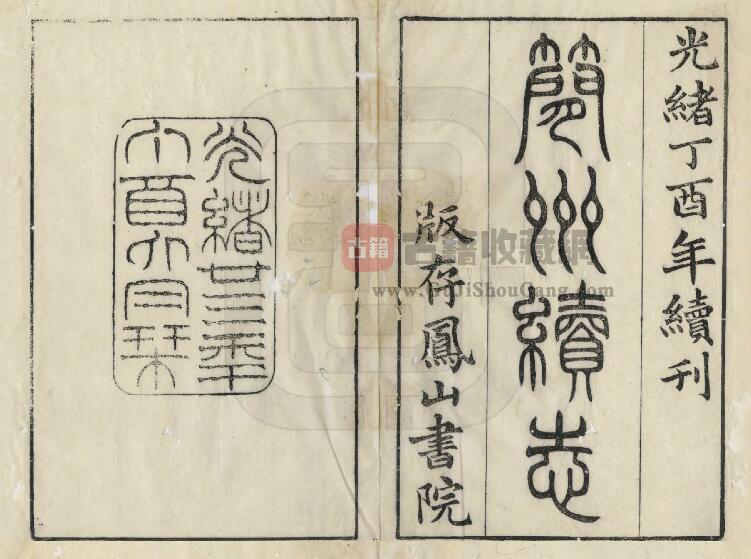 光緒丁酉年續刊
簡州續志
版存鳳山書院
光緒廿三年
丁酉
月栞
古籍
古籍收藏網
www.GuJiShouCang.com